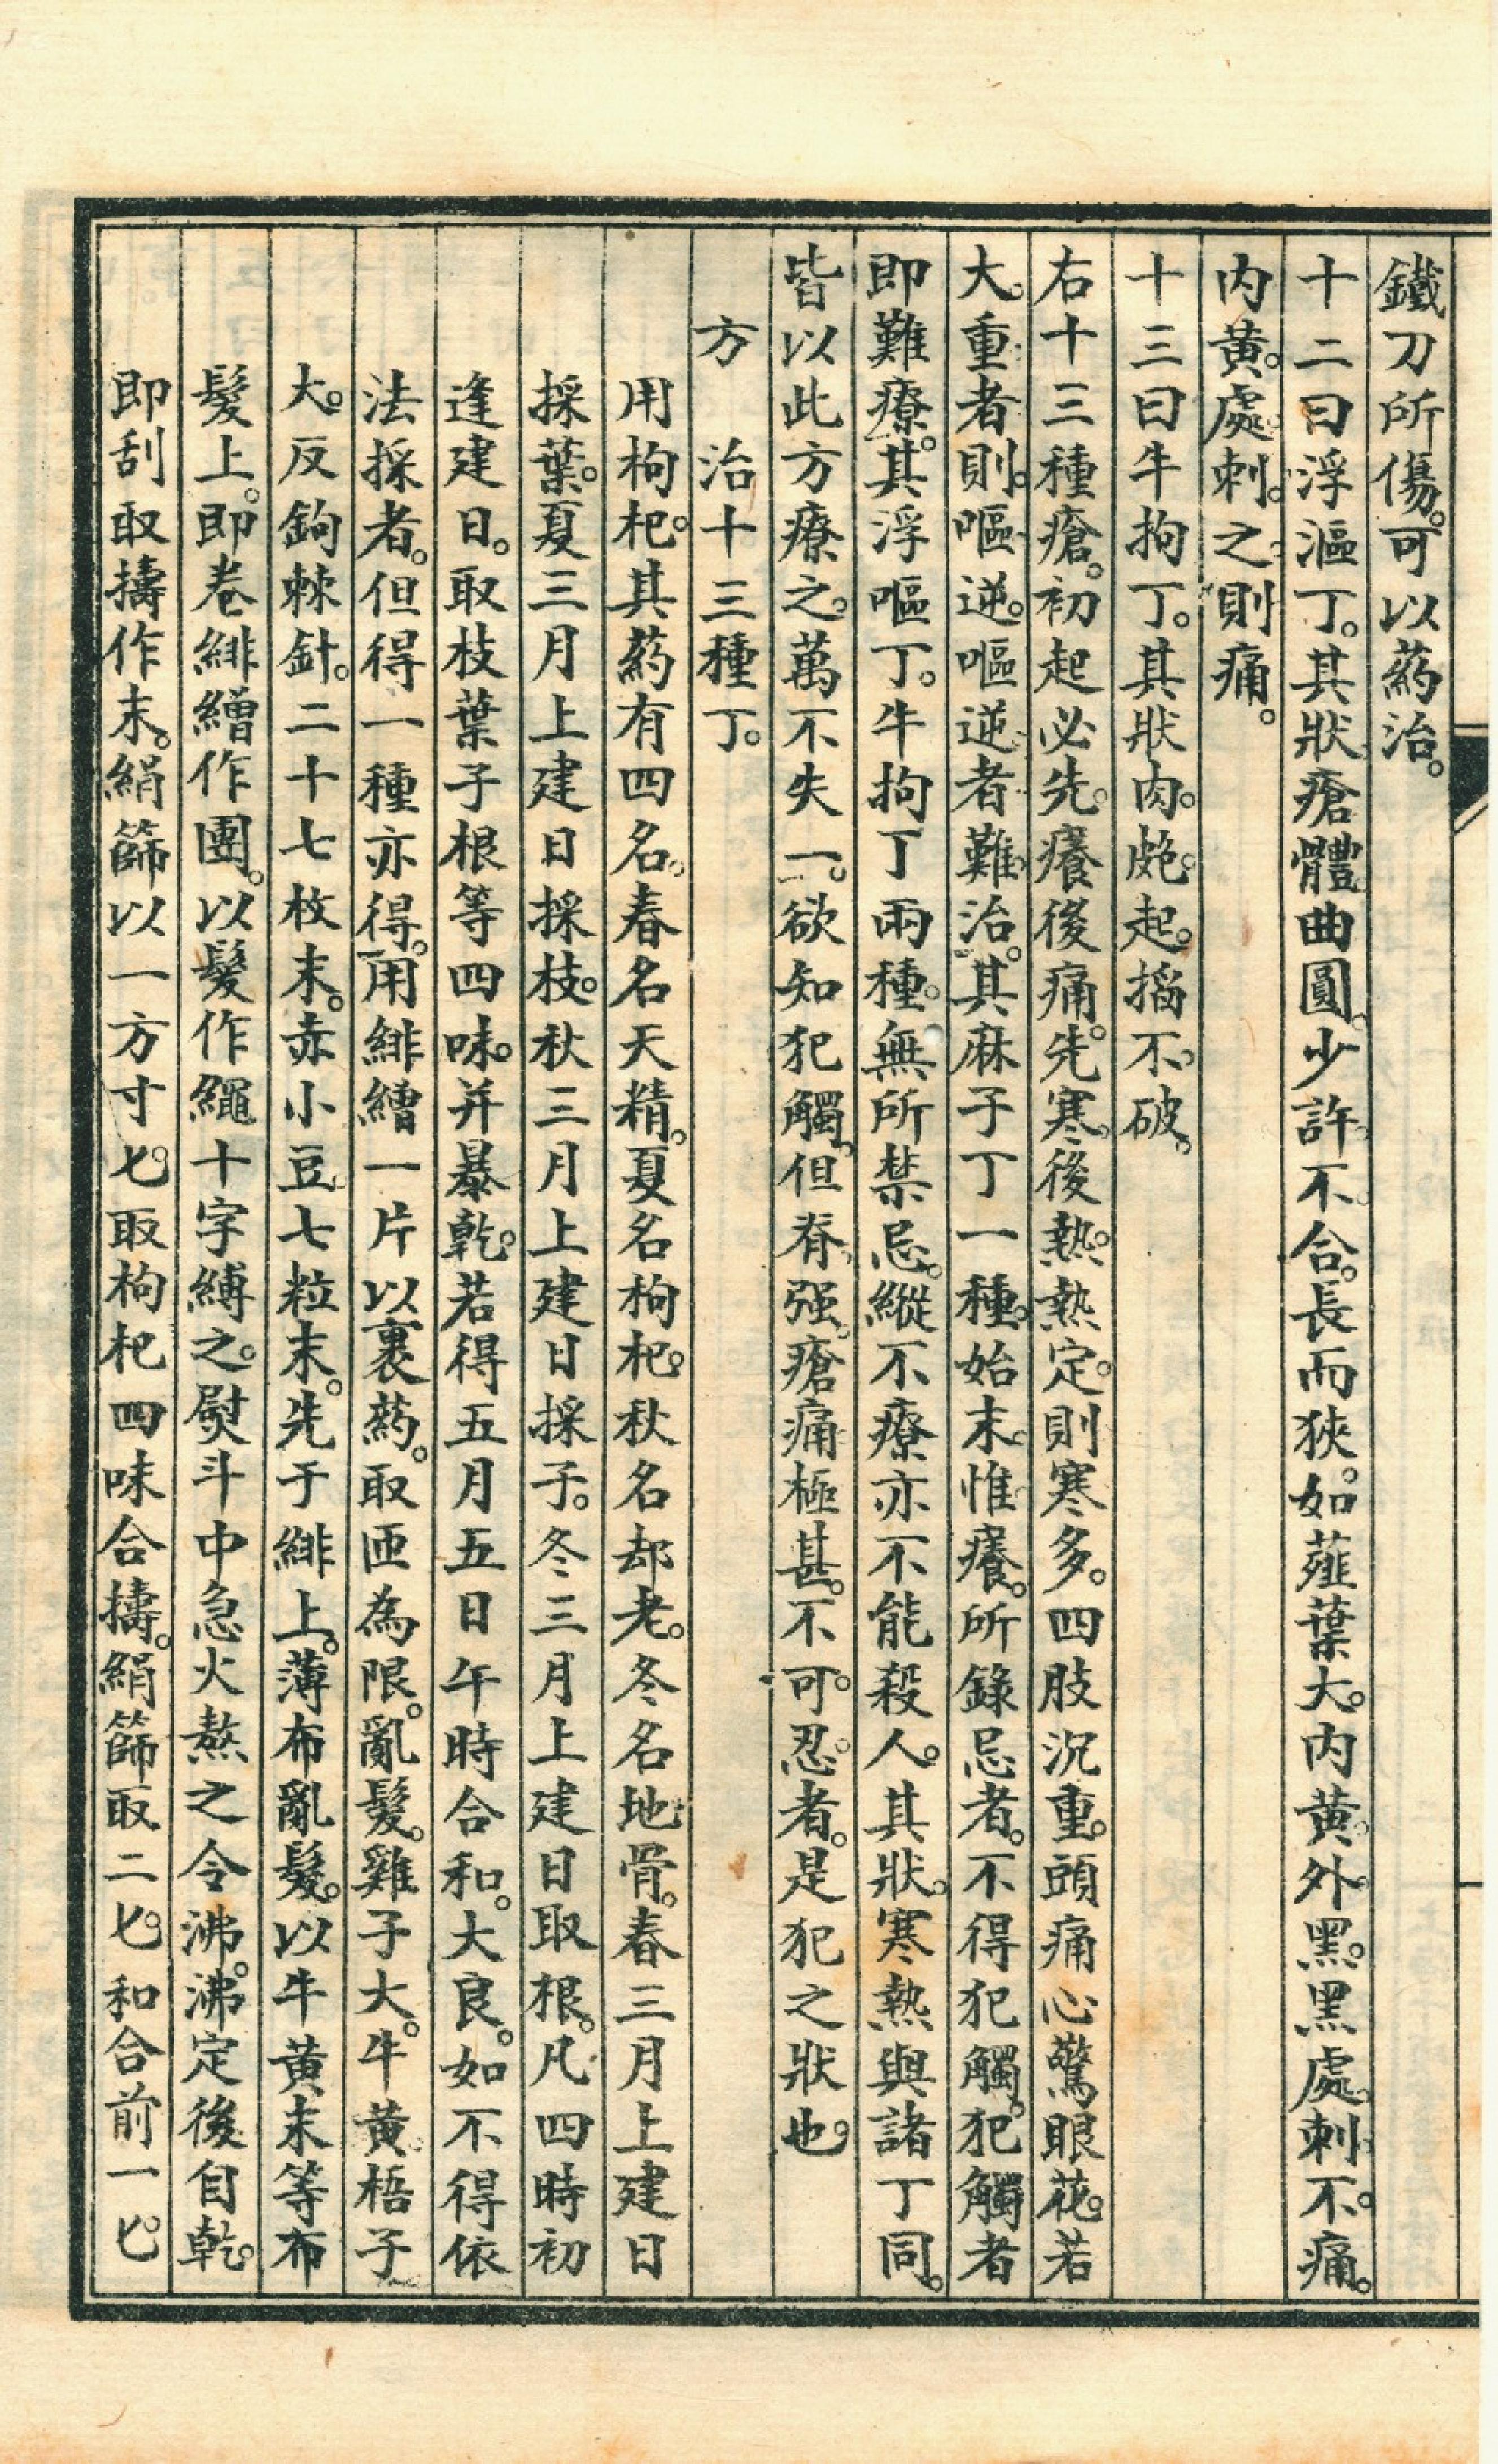 鐵刀所傷。可以葯治。
十二曰浮漚丁。其狀瘡體曲圓。少許不合。長而狹。如薤葉大。内黄。外黑。黑處刺。不痛。
内黄。處刺。之則痛。
十三曰牛拘丁。其狀肉。皰。起。掐不破。
右十三種瘡。初起必先。癢後痛。先寒。後熱。熱定。則寒多。四肢沉重。頭痛心驚眼花。若
大。重者則。嘔逆。嘔逆者難。治。其麻子丁一種。始末。惟癢。所錄忌者。不得犯觸。犯觸者
即難療。其浮嘔丁。牛拘丁兩種。無所禁忌。縱不療亦不能殺人。其狀。寒熱與諸丁同。
皆以此方療之。萬不失一。欲知犯觸。但脊强。瘡痛極甚。不可。忍。者。是犯之狀也。
方　治十三種丁。
用枸杞。其葯有四名。春名天精。夏名枸杞。秋名却老。冬名地骨。春三月上建日
採葉。夏三月上建日採枝。秋三月上建日採子。冬三月上建日取根。凡四時初
逢建日。取枝葉子根等四味。并暴乾。若得五月五日午時合和。大良。如不得依
法採者。但得一種亦得。用緋繒一片以裹葯。取匝為限。亂髮。雞子大。牛黄。梧子
大。反鉤棘針。二十七枚末。赤小豆七粒末。先于緋上。薄布亂髮。以牛黄末等布
髮上。即卷緋繒作團。以髮作繩十字縛之。熨斗中急火熬之令沸。沸定後自乾。
即刮取擣作末。絹篩以一方寸匕。取枸杞四味合擣。絹篩取二匕。和合前一匕。